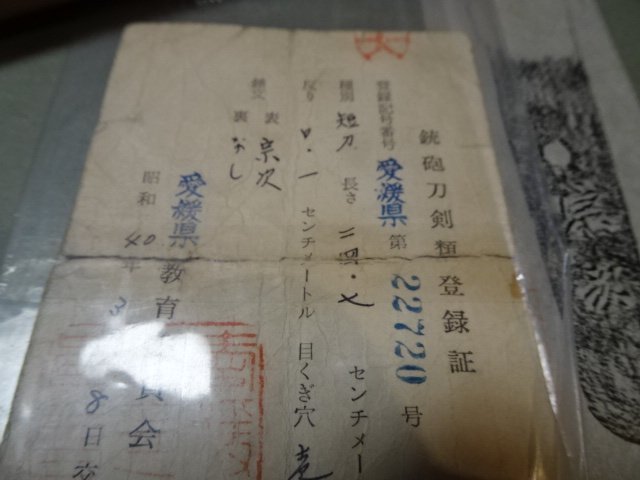 銃砲刀剣類登録証
登録記号番号 愛媛県 第 22720 号
種別 短刀 長さ 二四・七 センチメー
反り 〇・一 センチメートル 目くぎ穴 壱
銘文 表 宗次
裏 なし
昭和 40年 3 8日交
愛媛県教育 員会